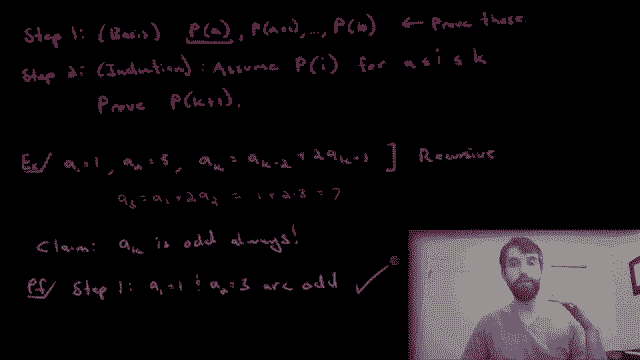 Step 1: (Basis) P(a), P(a+1), ..., P(b) ← Prove these.
Step 2: (Induction): Assume P(i) for a ≤ i ≤ k
Prove P(k+1).
Ex/ a₁=1, a₂=3, aₖ = aₖ₋₂ + 2aₖ₋₁ ] Recursive
a₃ = a₁ + 2a₂ = 1 + 2·3 = 7
Claim: aₖ is odd always!
Pf/ Step 1: a₁=1 & a₂=3 are odd ✓